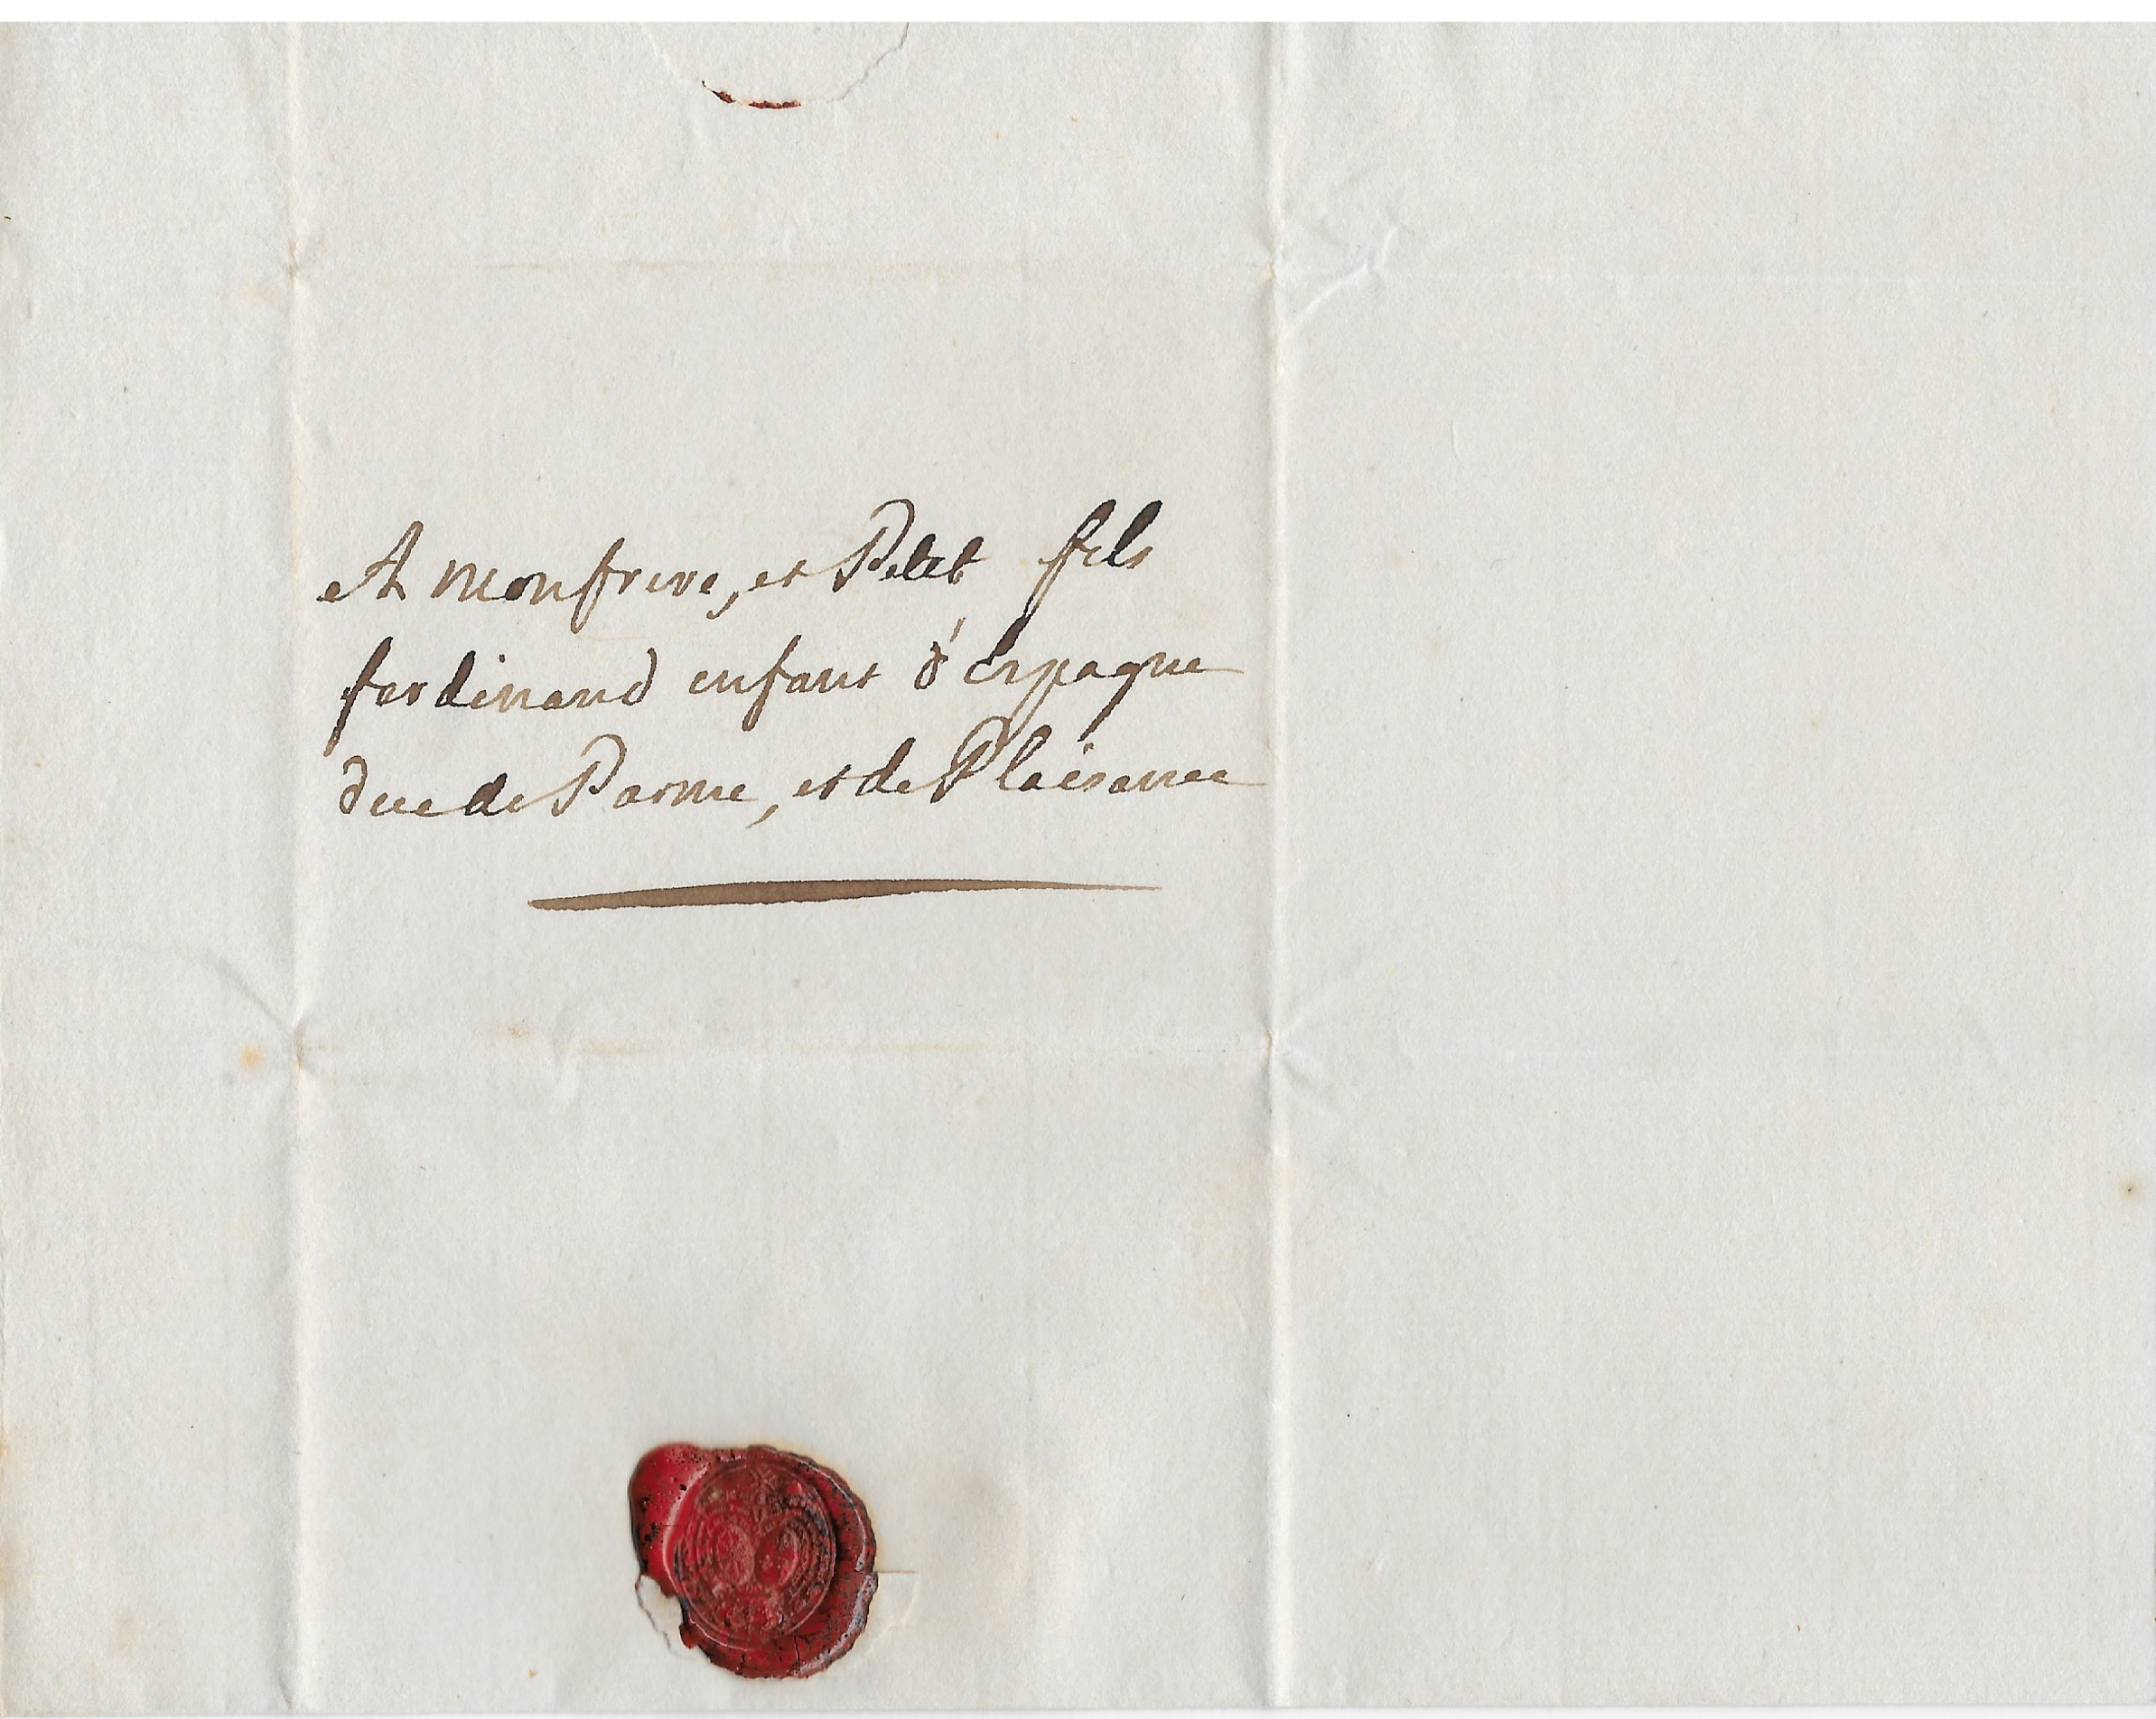 A monfrere, et Petit fils
ferdinand enfant d'Espagne
duc de Parme, et de Plaisance